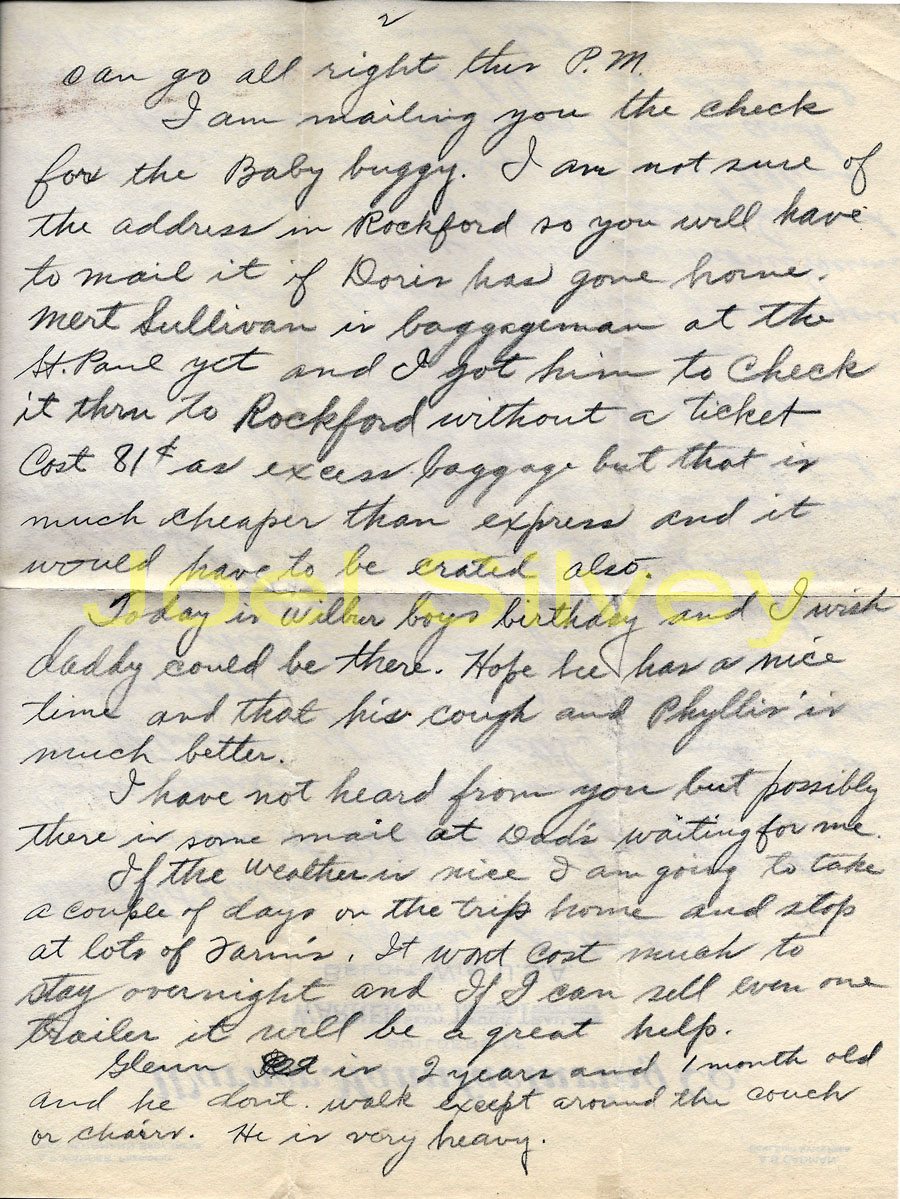 2
can go all right this P.M.
I am mailing you the check
for the Baby buggy. I am not sure of
the address in Rockford so you will have
to mail it if Doris has gone home.
Mert Sullivan is baggageman at the
St. Paul yet and I got him to check
it thru to Rockford without a ticket
Cost 81¢ as excess baggage but that is
much cheaper than express and it
would have to be crated also.
Joel Silvey
Today is Wilbur boys birthday and I wish
daddy could be there. Hope he has a nice
time and that his cough and Phyllis' is
much better.
I have not heard from you but possibly
there is some mail at Dad's waiting for me.
If the weather is nice I am going to take
a couple of days on the trip home and stop
at lots of Farms. It wont cost much to
stay overnight and If I can sell even one
trailer it will be a great help.
Glenn is 2 years and 1 month old
and he dont walk except around the couch
or chairs. He is very heavy.